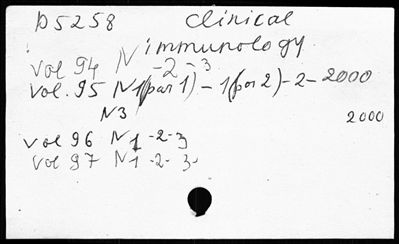 D5258 clinical
immunology
Vol 94 N -2-3
Vol. 95 N1(par 1) - 1(par 2) - 2 - 2000
N3 2000
Vol 96 N1 -2-3
Vol 97 N1 -2-3-